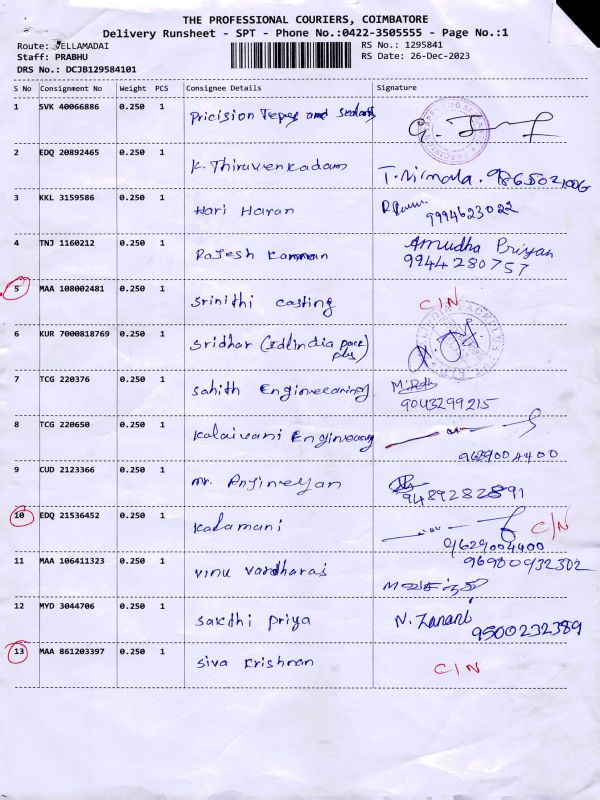 THE PROFESSIONAL COURIERS, COIMBATORE
Delivery Runsheet - SPT - Phone No.:0422-3505555 - Page No.:1
Route: VELLAMADAI
RS No.: 1295841
Staff: PRABHU
RS Date: 26-Dec-2023
DRS No.: DCJB129584101
S No Consignment No Weight PCS Consignee Details Signature
1 SVK 40066886 0.250 1 Pricision Tepes and
2 EDQ 20892465 0.250 1 K. Thiruvenkadam T. Nirmala. 9865502106
3 KKL 3159586 0.250 1 Hari Haran
9994623022
4 TNJ 1160212 0.250 1 Rajesh Kannan Amudha Priyan
9944280757
5 MAA 108002481 0.250 1 Srinithi casting C/N
6 KUR 7000818769 0.250 1 Sridhar (Idlindia pack
plus)
7 TCG 220376 0.250 1 Sahith Engineearing
9043299215
8 TCG 220650 0.250 1 Kalaivani Engineering
9629004400
9 CUD 2123366 0.250 1 Mr. Anjineyan
9489282891
10 EDQ 21536452 0.250 1 Kalamani C/N
9629004400
11 MAA 106411323 0.250 1 Vinu Vardharaj
96900932302
12 MYD 3044706 0.250 1 Sakthi Priya N. Zanani
9500232389
13 MAA 861203397 0.250 1 Siva Krishnan C/N